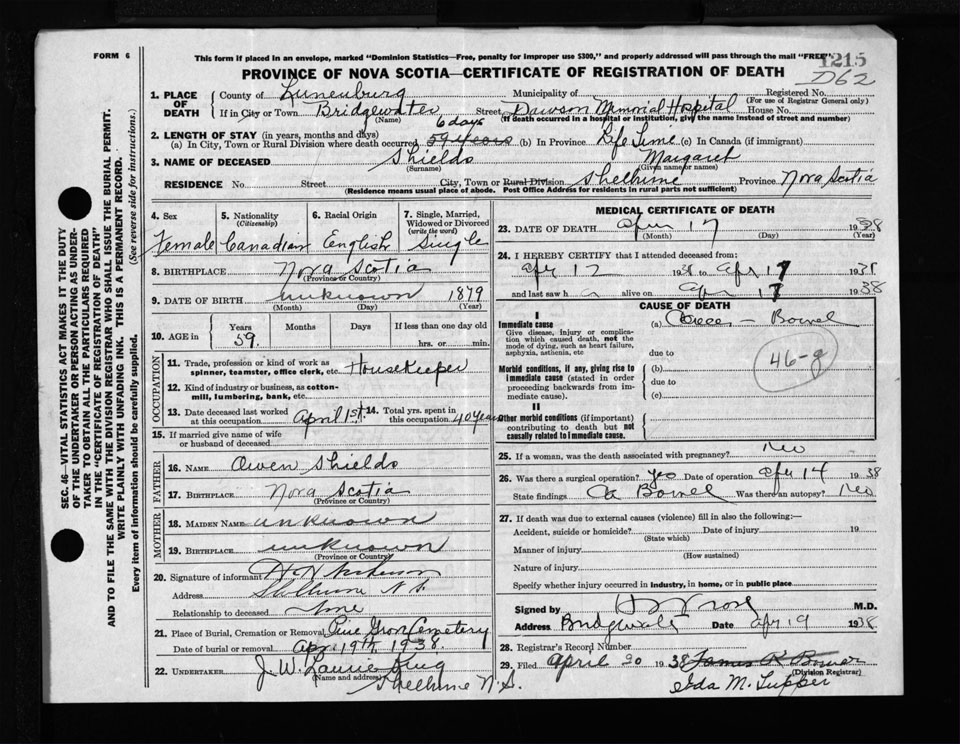 FORM 6
This form if placed in an envelope, marked "Dominion Statistics—Free, penalty for improper use $300," and properly addressed will pass through the mail "FREE"
1215
D62
PROVINCE OF NOVA SCOTIA—CERTIFICATE OF REGISTRATION OF DEATH
1. PLACE OF DEATH
County of Lunenburg Municipality of Registered No.
(For use of Registrar General only)
If in City or Town, Bridgewater Street, Dawson Memorial Hospital House No.
(Name) (If death occurred in a hospital or institution, give the name instead of street and number)
2. LENGTH OF STAY (in years, months and days) 6 days
(a) In City, Town or Rural Division where death occurred 59 years (b) In Province Life Time (c) In Canada (if immigrant)
3. NAME OF DECEASED Shields Margaret
(Surname) (Given name or names)
RESIDENCE No. Street City, Town or Rural Division Shelburne Province Nova Scotia
(Residence means usual place of abode. Post Office Address for residents in rural parts not sufficient)
SEC. 46—VITAL STATISTICS ACT MAKES IT THE DUTY
OF THE UNDERTAKER OR PERSON ACTING AS UNDER-
TAKER TO OBTAIN ALL THE PARTICULARS REQUIRED
IN THE "CERTIFICATE OF REGISTRATION OF DEATH"
AND TO FILE THE SAME WITH THE DIVISION REGISTRAR WHO SHALL ISSUE THE BURIAL PERMIT.
WRITE PLAINLY WITH UNFADING INK. THIS IS A PERMANENT RECORD.
Every item of information should be carefully supplied. (See reverse side for instructions.)
4. Sex 5. Nationality (Citizenship) 6. Racial Origin 7. Single, Married, Widowed or Divorced (write the word)
Female Canadian English Single
8. BIRTHPLACE Nova Scotia
(Province or Country)
9. DATE OF BIRTH unknown 1879
(Month) (Day) (Year)
10. AGE in Years Months Days If less than one day old
59 hrs. or min.
OCCUPATION
11. Trade, profession or kind of work as spinner, teamster, office clerk, etc. Housekeeper
12. Kind of industry or business, as cotton-mill, lumbering, bank, etc.
13. Date deceased last worked at this occupation April 1st 14. Total yrs. spent in this occupation 40 years
15. If married give name of wife or husband of deceased
FATHER
16. NAME Owen Shields
17. BIRTHPLACE Nova Scotia
(Province or Country)
MOTHER
18. MAIDEN NAME unknown
19. BIRTHPLACE unknown
(Province or Country)
20. Signature of informant
Address Shelburne N.S.
Relationship to deceased None
21. Place of Burial, Cremation or Removal Pine Grove Cemetery
Date of burial or removal Apr. 19th, 1938.
22. UNDERTAKER J. W.
(Name and address) Shelburne N.S.
MEDICAL CERTIFICATE OF DEATH
23. DATE OF DEATH Apr 17 1938
(Month) (Day) (Year)
24. I HEREBY CERTIFY that I attended deceased from:
Apr 12 1938 to Apr 17 1938
and last saw h alive on Apr 17 1938
CAUSE OF DEATH
I
Immediate cause (a) Bowel
Give disease, injury or complication which caused death, not the mode of dying, such as heart failure, asphyxia, asthenia, etc
due to
46-g
Morbid conditions, if any, giving rise to immediate cause (stated in order proceeding backwards from immediate cause). (b)
due to
(c)
II
Other morbid conditions (if important) contributing to death but not causally related to immediate cause.
25. If a woman, was the death associated with pregnancy? No
26. Was there a surgical operation? Yes Date of operation Apr 14 1938
State findings Ca Bowel Was there an autopsy? No
27. If death was due to external causes (violence) fill in also the following:—
Accident, suicide or homicide? Date of injury 19
(State which)
Manner of injury
(How sustained)
Nature of injury
Specify whether injury occurred in industry, in home, or in public place
Signed by M.D.
Address Bridgewater Date Apr 19 1938
28. Registrar's Record Number
29. Filed April 20 1938 James R Bower
(Division Registrar)
Ida M. Tupper